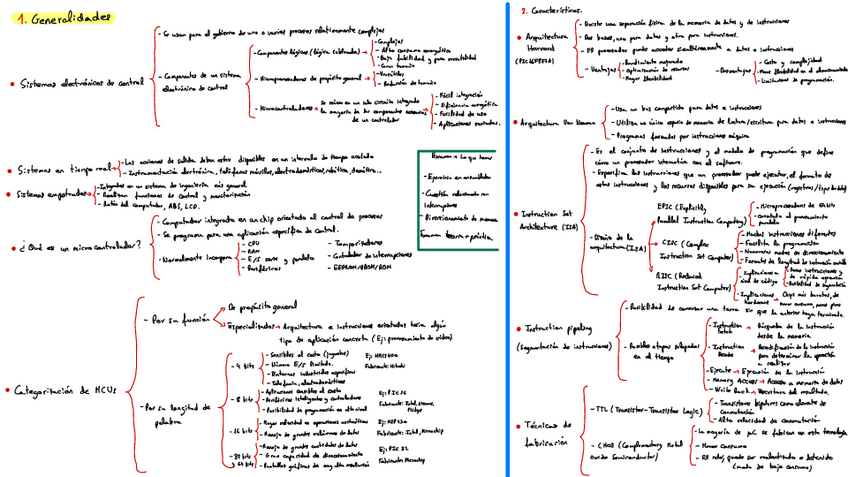 1. Generalidades
• Sistemas electrónicos de control
- Se usan para el gobierno de uno o varios procesos relativamente complejos
- Componentes de un sistema
electrónico de control
- Componentes lógicos (lógica cableada)
- Complejos
- Alto consumo energético
- Baja fiabilidad y poca
- Gran tamaño
- Microprocesadores de propósito general
- Versátiles
- Reducción de tamaño
- Microcontroladores
Se reúnen en un solo circuito integrado
la mayoría de los componentes
de un controlador
- Fácil integración
- Eficiencia energética
- Facilidad de uso
- Aplicaciones
• Sistemas en tiempo real
- Las acciones de salida deben estar disponibles en un intervalo de tiempo acotado
- Instrumentación electrónica, teléfonos móviles, electrodomésticos, robótica, domótica...
• Sistemas empotrados
- Integrados en un sistema de ingeniería más general
- Realizan funciones de control y monitorización
- Ratón del computador, ABS, LCD.
• ¿Qué es un microcontrolador?
- Computador integrado en un chip orientado al control de procesos
- Se programa para una aplicación específica de control.
- Normalmente incorpora
- CPU
- RAM
- E/S serie y paralela
- Periféricos
- Temporizadores
- Controlador de interrupciones
- EEPROM/PROM/ROM
- Ejercicio en ensamblador
- Cuestión relacionada con
interrupciones
- Direccionamiento de memoria
• Categorización de MCUs
- Por su función
De propósito general
Especializados → Arquitectura e instrucciones orientadas hacia algún
tipo de aplicación concreta (Ej: procesamiento de vídeo)
- Por su longitud de
palabra
- 4 bits
- Sensibles al costo (juguetes)
- Número E/S limitado.
Fabricante: Hitachi
- 8 bits
- Aplicaciones sensibles al costo
- Periféricos integrados y controladores
- Posibilidad de programación en alto nivel
Ej: PIC 16
- 16 bits
- Mayor velocidad en operaciones aritméticas
- Manejo de grandes volúmenes de datos
Ej: MSP430
Fabricante: Intel, Microchip
- 32 bits
y 64 bits
- Manejo de grandes cantidades de datos
- Gran capacidad de direccionamiento
- Pantallas gráficas de muy alta resolución
Ej: PIC 32
Fabricante: Microchip
2. Características.
• Arquitectura
Harvard
- Existe una separación física de la memoria de datos y de instrucciones
- Dos buses, uno para datos y otro para instrucciones.
- El procesador puede acceder simultáneamente a datos e instrucciones
- Ventajas
- Rendimiento mejorado
- Optimización de recursos
- Mayor flexibilidad
- Desventajas
- Costo y complejidad
- Limitaciones de programación.
• Arquitectura Von Neumann
- Usa un bus compartido para datos e instrucciones
- Utiliza un único espacio de memoria de lectura/escritura para datos e instrucciones
- Programas formados por instrucciones máquina
• Instruction Set
Architecture (ISA)
- Es el conjunto de instrucciones y el modelo de programación que define
cómo un procesador interactúa con el software.
- Especifica las instrucciones que un procesador puede ejecutar, el formato de
estas instrucciones y los recursos disponibles para su ejecución
- Diseño de la
arquitectura (ISA)
EPIC (Explicitly
Parallel Instruction Computing)
- Microprocesadores de 64 bits
CISC (Complex
Instruction Set Computer)
- Muchas instrucciones diferentes
- Facilita la programación
- Numerosos modos de direccionamiento
RISC (Reduced
Instruction Set Computer)
• Instruction pipeling
(Segmentación de instrucciones)
- Posibilidad de comenzar una tarea sin que la anterior haya terminado.
- Posibles etapas solapadas
en el tiempo
- Instruction
Fetch
Búsqueda de la instrucción
desde la memoria
- Instruction
Decode
Decodificación de la instrucción
para determinar la operación
a realizar
- Execute → Ejecución de la instrucción
- Memory Access → Acceso a memoria de datos
- Write Back → Escritura del resultado.
• Técnicas de
fabricación
- TTL (Transistor-Transistor Logic)
- Transistores bipolares como elemento de
conmutación
- Alta velocidad de conmutación
- CMOS (Complementary Metal
Oxide Semiconductor)
- La mayoría de µCs se fabrican en esta tecnología
- Menor consumo
- El reloj puede ser ralentizado o detenido
(modo de bajo consumo)